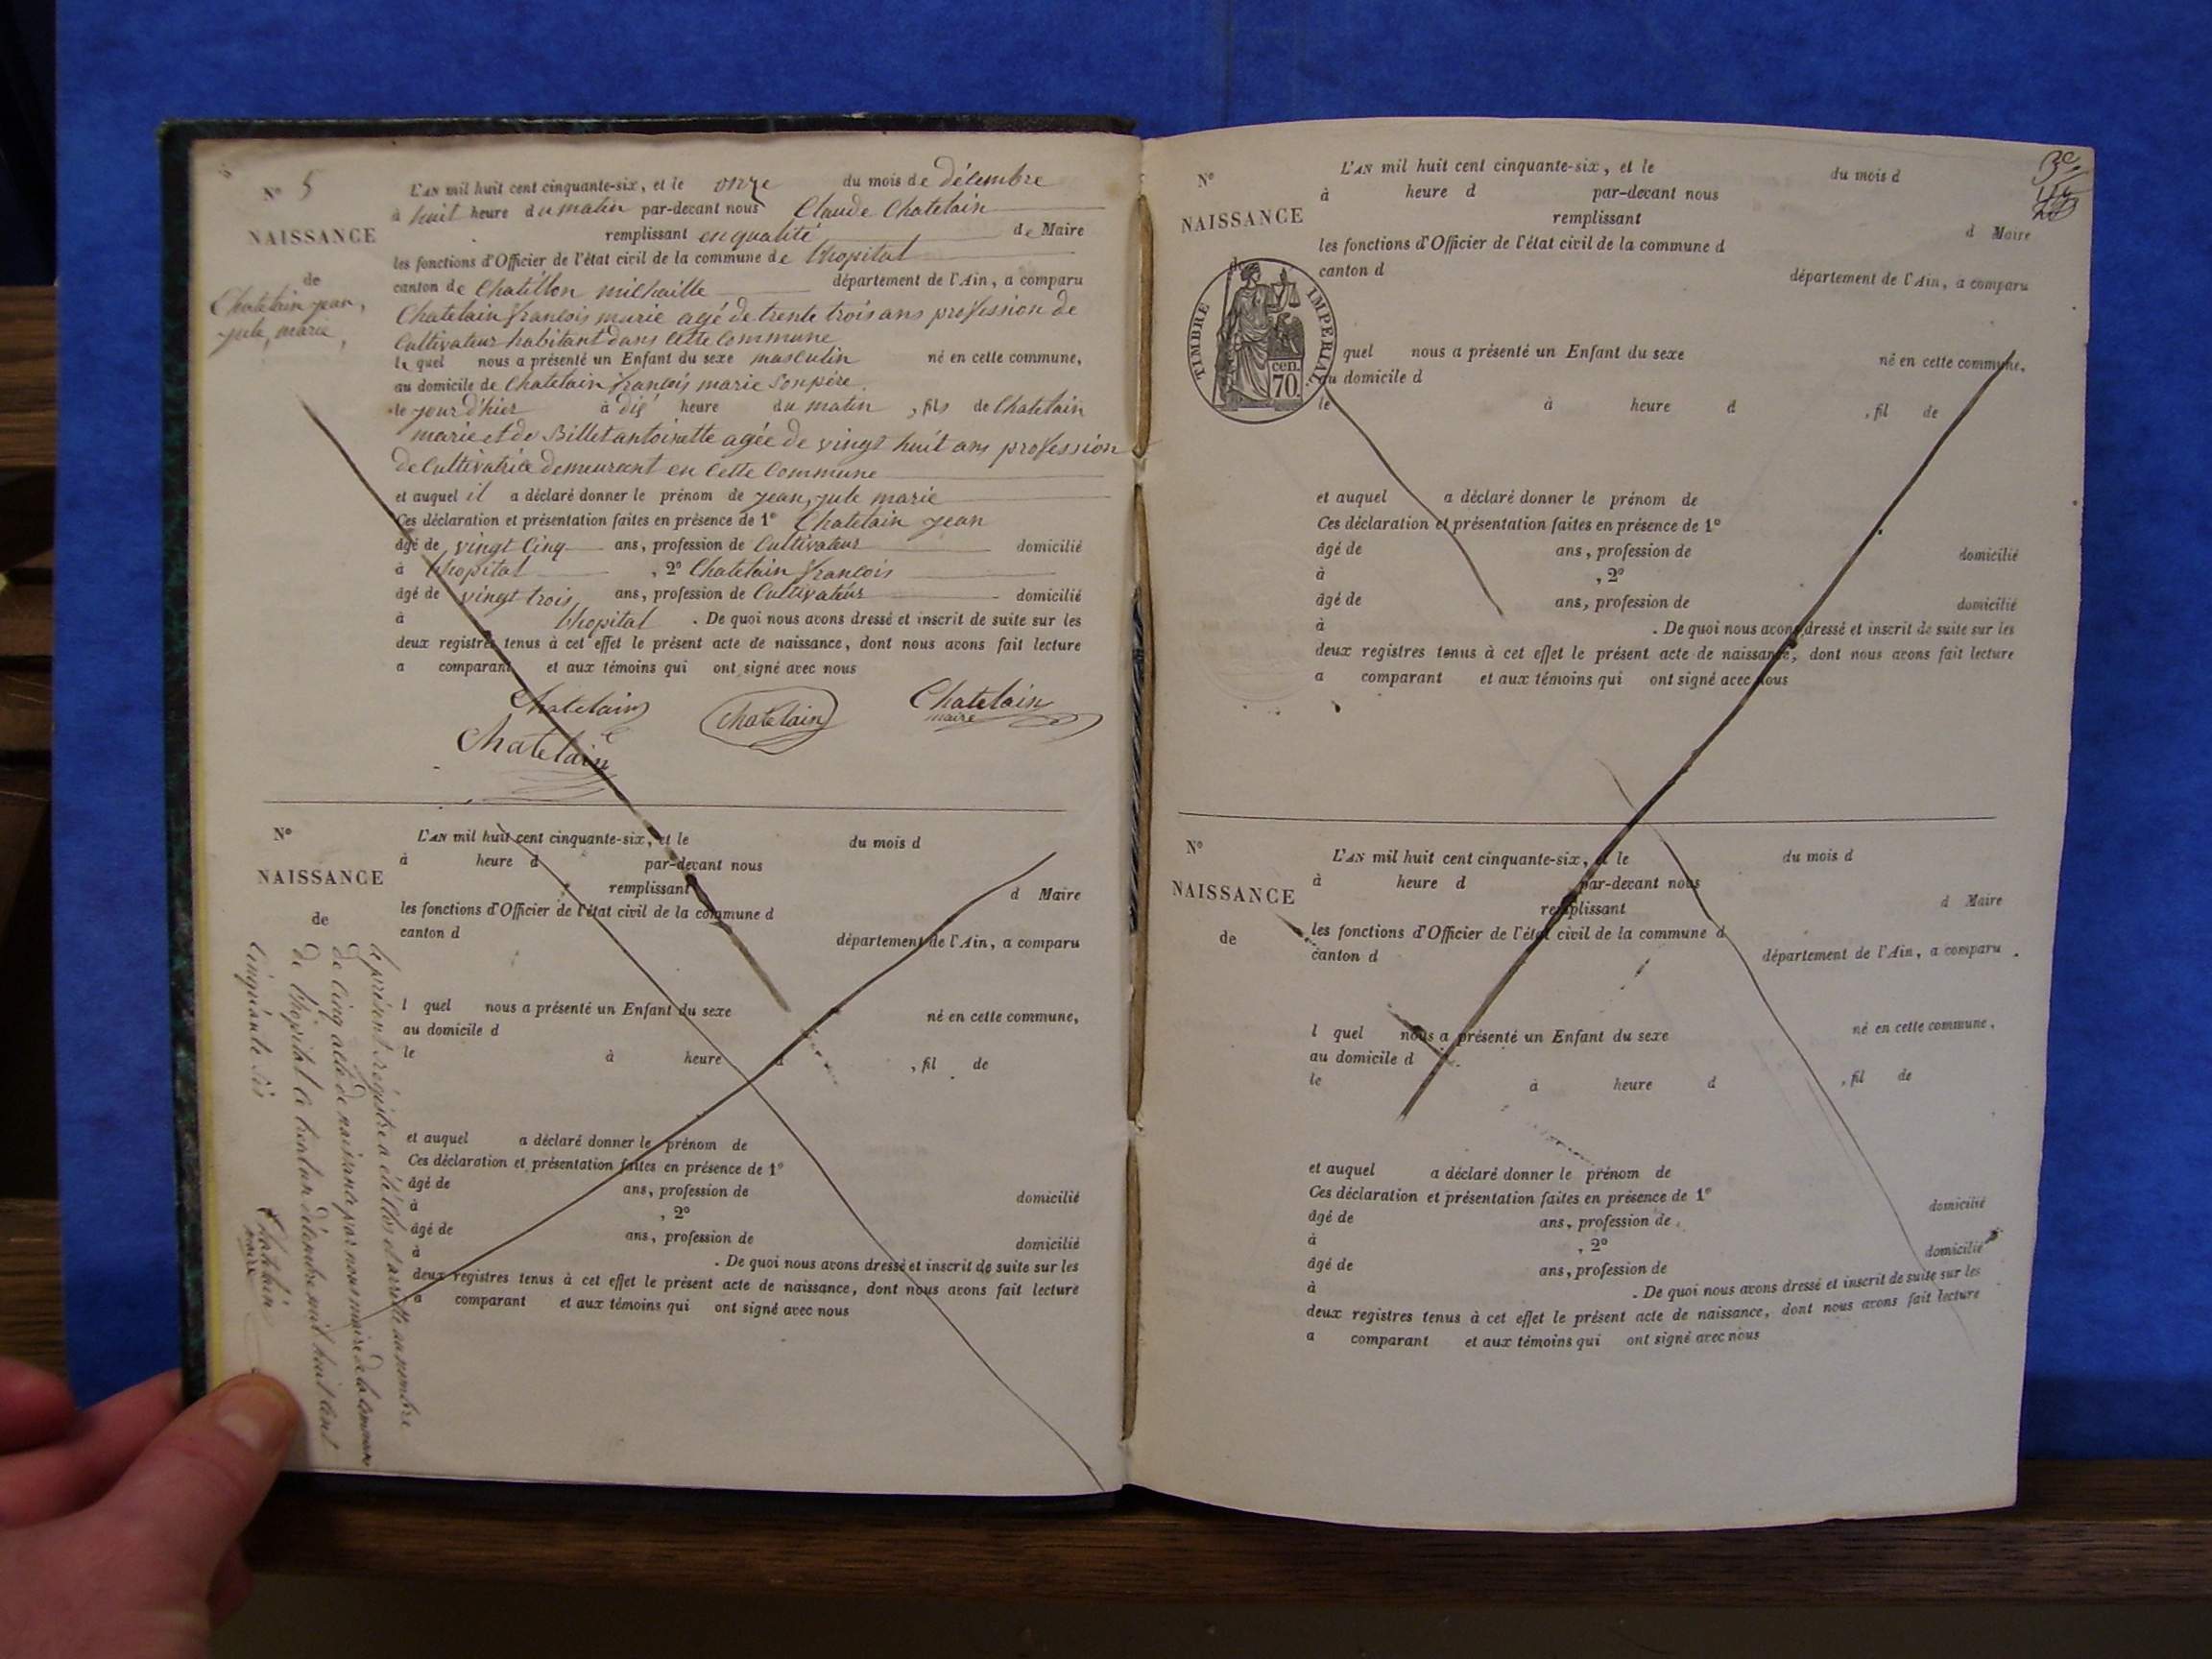 N° 5
NAISSANCE
de
Chatelain jean,
jule, marie,
L'AN mil huit cent cinquante-six, et le onze du mois de décembre
à huit heure du matin par-devant nous Claude Chatelain
remplissant en qualité de Maire
les fonctions d'Officier de l'état civil de la commune de lhopital
canton de Chatillon michaille département de l'Ain, a comparu
Chatelain françois marie agé de trente trois ans profession de
Cultivateur habitant dans cette Commune
le quel nous a présenté un Enfant du sexe masculin né en cette commune,
au domicile de Chatelain françois marie son père
le jour d'hier à dix heure du matin, fils de Chatelain
marie et de Billet antoinette agée de vingt huit ans profession
de Cultivatrice demeurant en Cette Commune
et auquel il a déclaré donner le prénom de jean, jule marie
Ces déclaration et présentation faites en présence de 1° Chatelain jean
âgé de vingt Cinq ans, profession de Cultivateur domicilié
à lhopital , 2° Chatelain françois
âgé de vingt trois ans, profession de Cultivateur domicilié
à lhopital . De quoi nous avons dressé et inscrit de suite sur les
deux registres tenus à cet effet le présent acte de naissance, dont nous avons fait lecture
a comparant et aux témoins qui ont signé avec nous
Chatelain Chatelain Chatelain
maire
Chatelain
N°
NAISSANCE
de
L'AN mil huit cent cinquante-six, et le du mois d
à heure d par-devant nous
remplissant d Maire
les fonctions d'Officier de l'état civil de la commune d
canton d département de l'Ain, a comparu
l quel nous a présenté un Enfant du sexe né en cette commune,
au domicile d
le à heure d , fil de
et auquel a déclaré donner le prénom de
Ces déclaration et présentation faites en présence de 1°
âgé de ans, profession de domicilié
à , 2°
âgé de ans, profession de domicilié
à . De quoi nous avons dressé et inscrit de suite sur les
deux registres tenus à cet effet le présent acte de naissance, dont nous avons fait lecture
a comparant et aux témoins qui ont signé avec nous
le présent régistre a été Clos et arrêtté au nombre
de Cinq acte de naissance par nous maire de la Commune
de lhopital le trente un décembre mil huit Cent
Cinquante Six
Chatelain
maire
N°
NAISSANCE
de
TIMBRE IMPERIAL
70 cen.
L'AN mil huit cent cinquante-six, et le du mois d
à heure d par-devant nous
remplissant d Maire
les fonctions d'Officier de l'état civil de la commune d
canton d département de l'Ain, a comparu
quel nous a présenté un Enfant du sexe né en cette commune,
au domicile d
le à heure d , fil de
et auquel a déclaré donner le prénom de
Ces déclaration et présentation faites en présence de 1°
âgé de ans, profession de domicilié
à , 2°
âgé de ans, profession de domicilié
à . De quoi nous avons dressé et inscrit de suite sur les
deux registres tenus à cet effet le présent acte de naissance, dont nous avons fait lecture
a comparant et aux témoins qui ont signé avec nous
N°
NAISSANCE
de
L'AN mil huit cent cinquante-six, et le du mois d
à heure d par-devant nous
remplissant d Maire
les fonctions d'Officier de l'état civil de la commune d
canton d département de l'Ain, a comparu
l quel nous a présenté un Enfant du sexe né en cette commune,
au domicile d
le à heure d , fil de
et auquel a déclaré donner le prénom de
Ces déclaration et présentation faites en présence de 1°
âgé de ans, profession de domicilié
à , 2°
âgé de ans, profession de domicilié
à . De quoi nous avons dressé et inscrit de suite sur les
deux registres tenus à cet effet le présent acte de naissance, dont nous avons fait lecture
a comparant et aux témoins qui ont signé avec nous